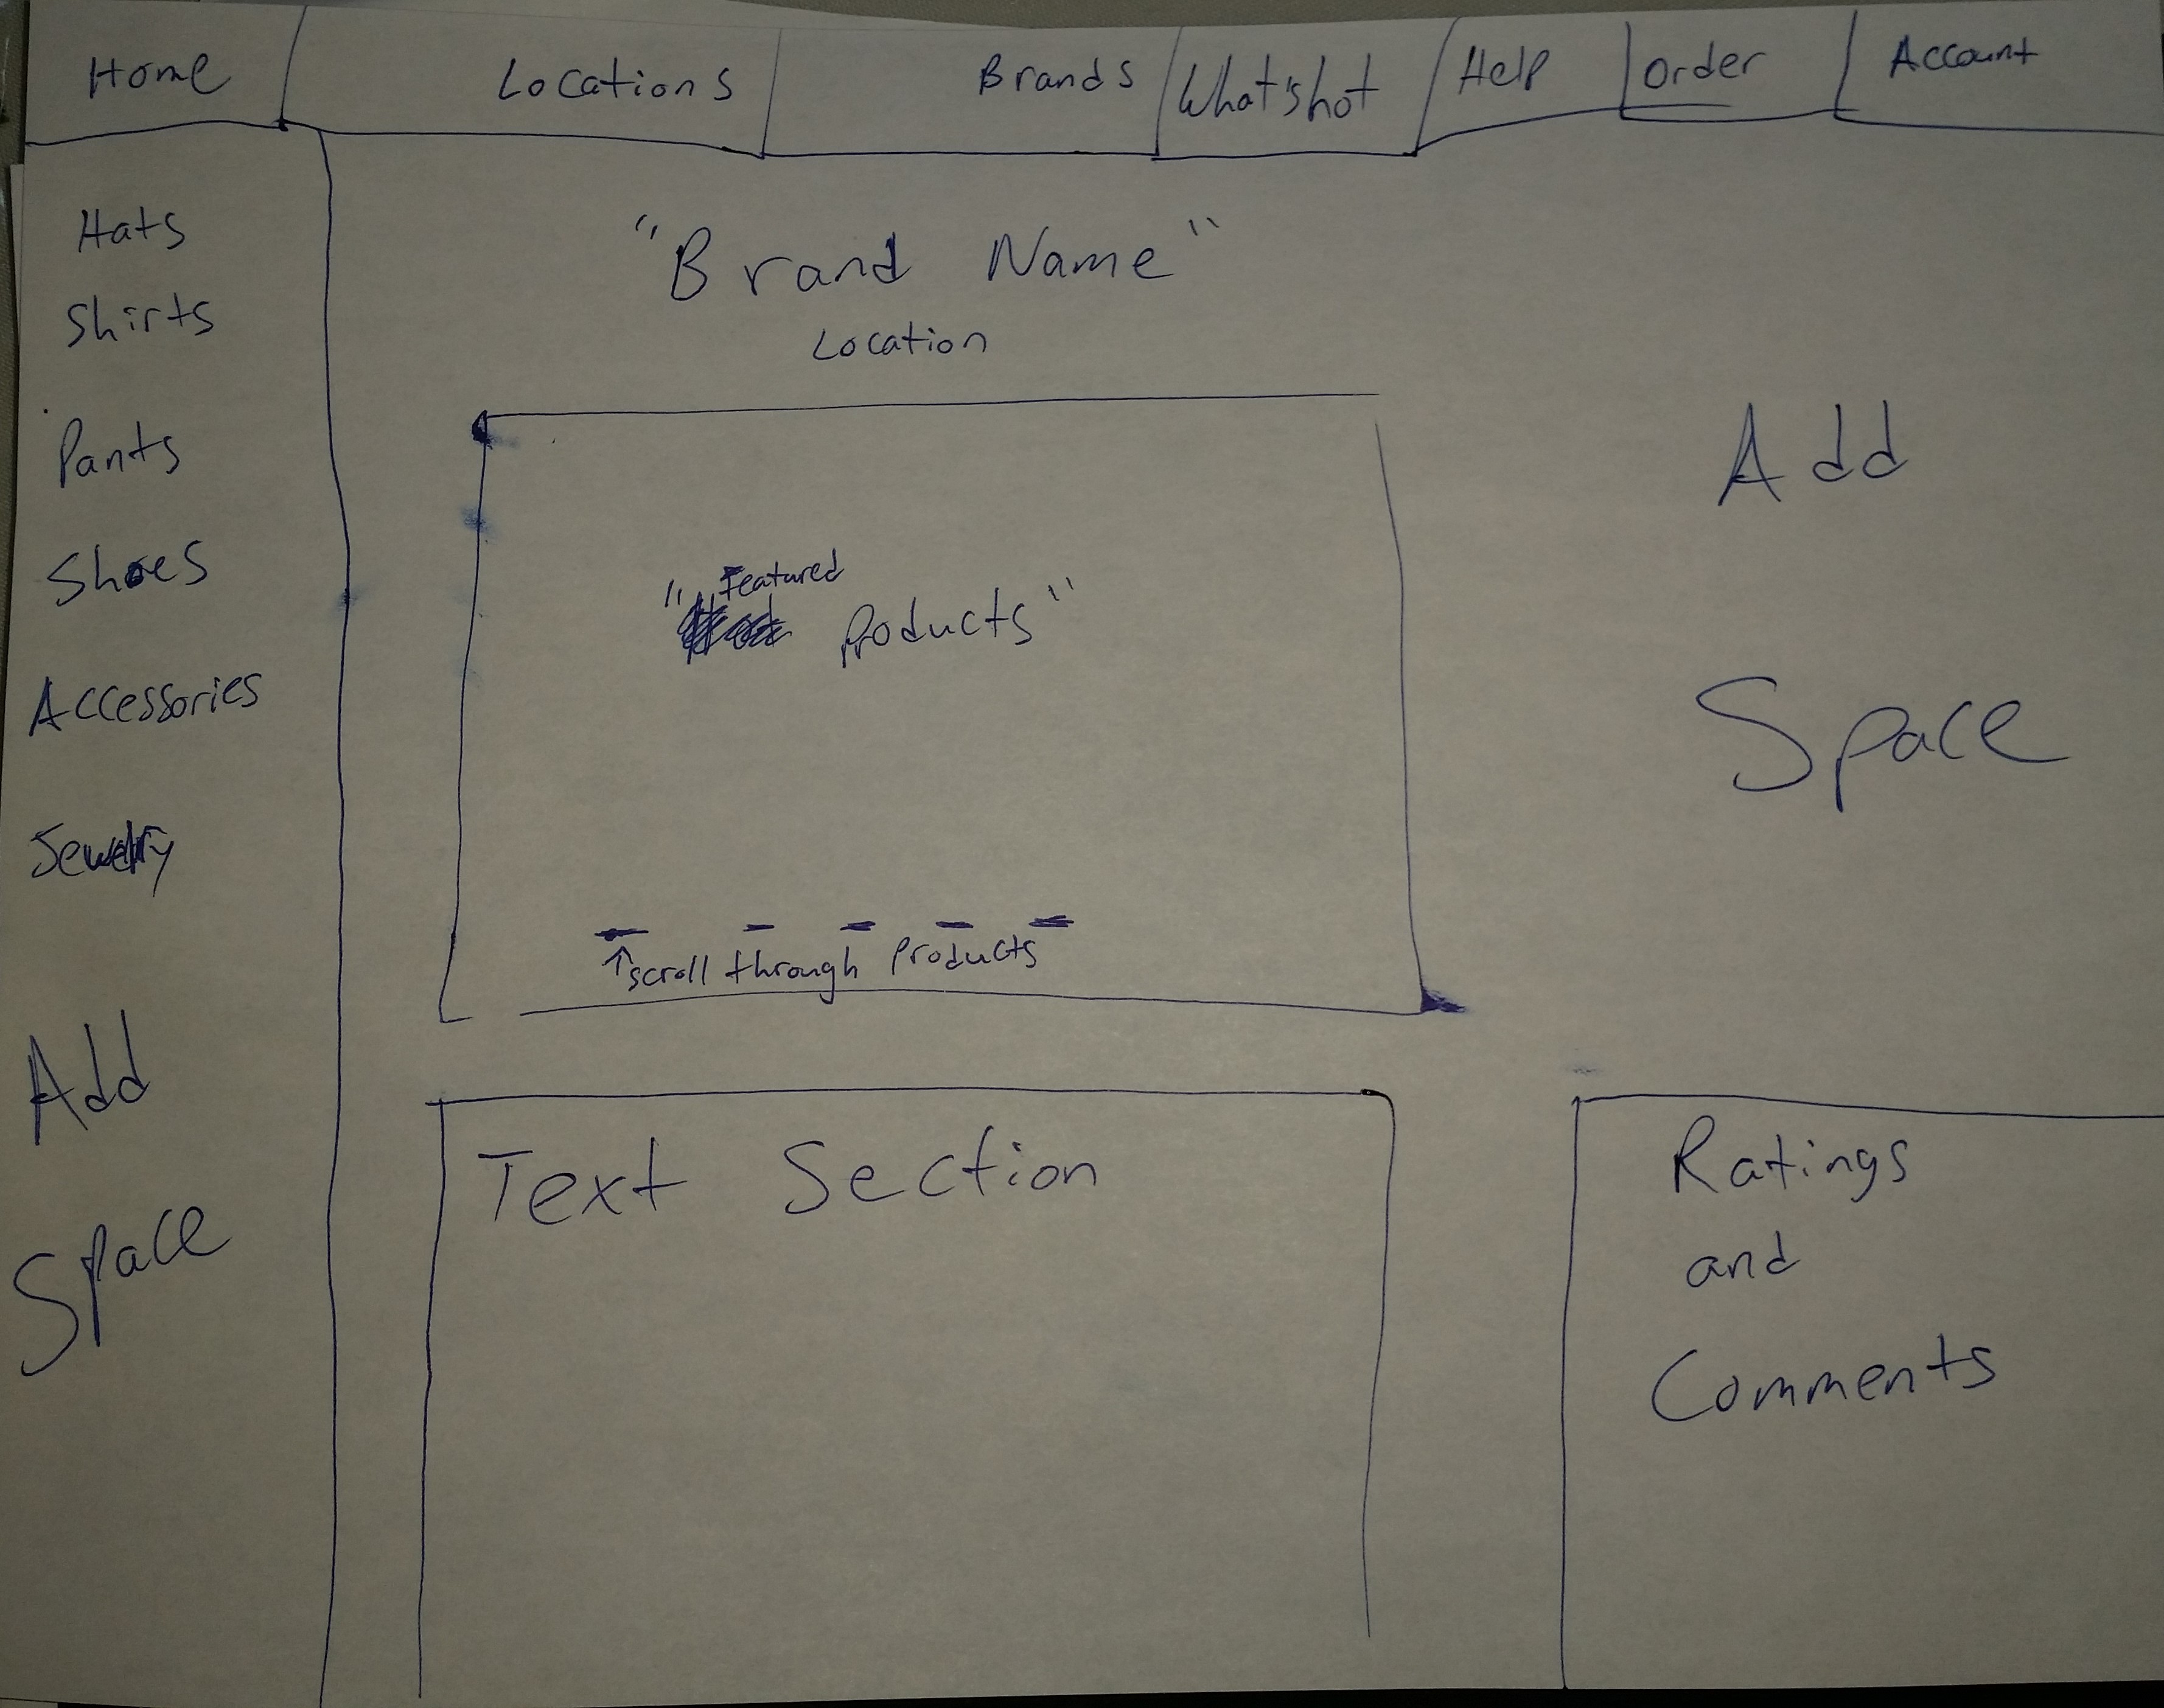 Home Locations Brands What's hot Help Order Account
Hats
Shirts
Pants
Shoes
Accessories
Jewelry
Add
Space
"Brand Name"
Location
"Featured
Products"
↑scroll through Products
Text Section
Add
Space
Ratings
and
Comments